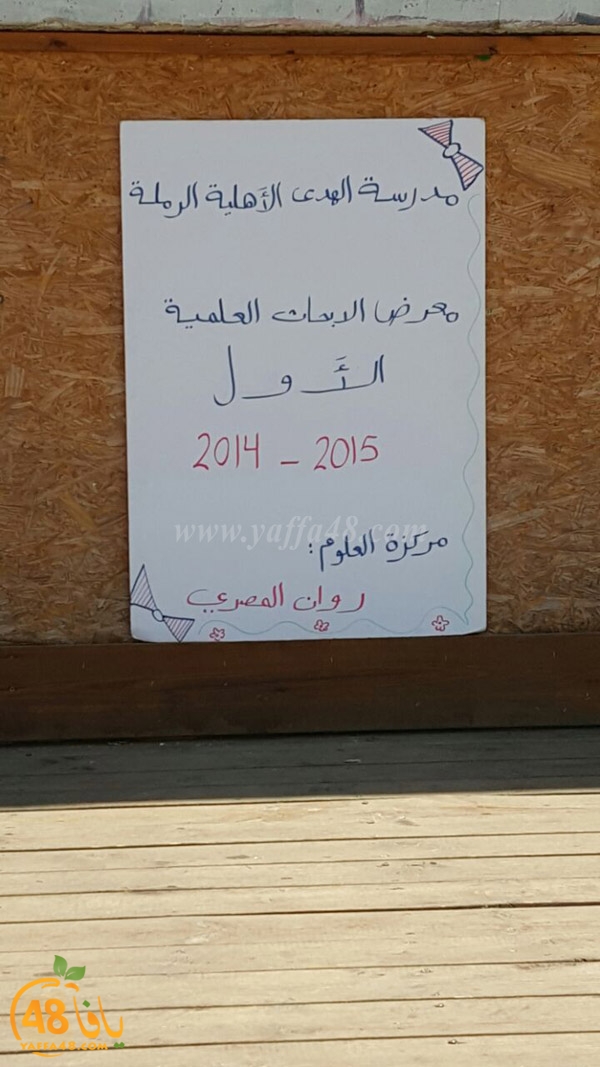 مدرسة الهدى الأهلية الرملة
معرض الابحاث العلمية
الأَول
2014 - 2015
www.yaffa48.com
مركزة العلوم:
روان المصري
48 يافا
YAFFA48.COM